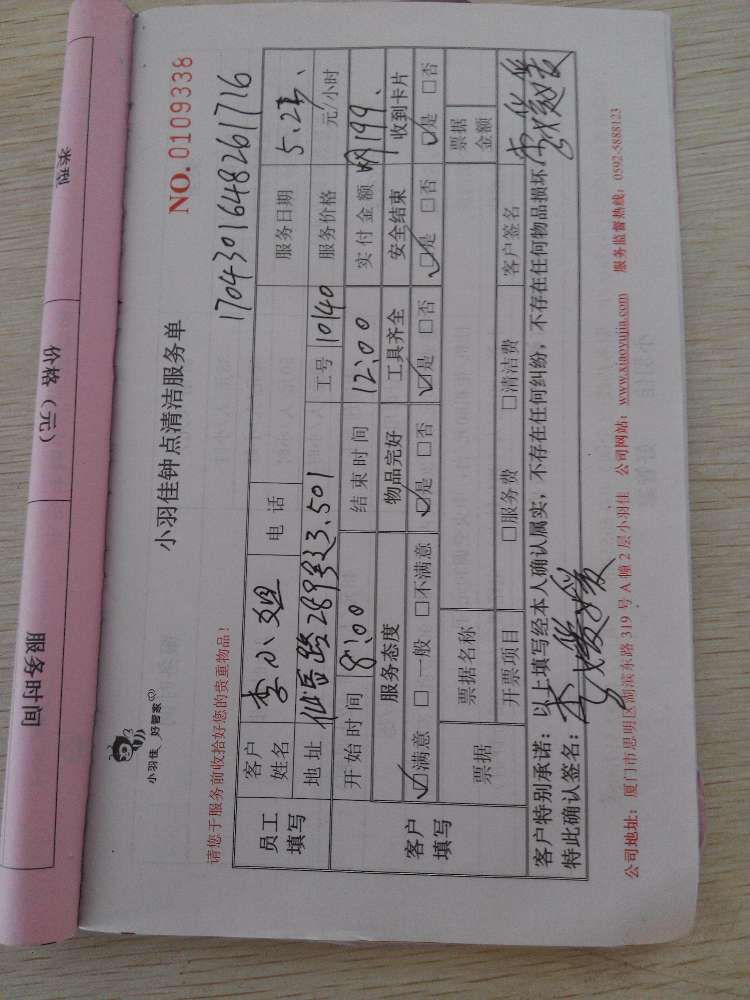 类型
价格（元）
服务时间
小羽佳 好管家
小羽佳钟点清洁服务单
NO.0109338
请您于服务前收拾好您的贵重物品！
1704301648261716
员工填写
客户姓名 李小姐 电话 服务日期 5.2
地址 仙岳路289号 3.501 工号 10140 服务价格 元/小时
客户填写
开始时间 8:00 结束时间 12:00 实付金额 199.
服务态度 物品完好 工具齐全 安全结束 收到卡片
☑满意 □一般 □不满意 ☑是 □否 ☑是 □否 ☑是 □否 ☑是 □否
票据 票据名称 票据金额
开票项目 □服务费 □清洁费 客户签名
客户特别承诺：以上填写经本人确认属实，不存在任何纠纷，不存在任何物品损坏
特此确认签名：
公司地址：厦门市思明区湖滨东路319号A幢2层小羽佳 公司网站：www.xiaoyujia.com 服务监督热线：0592-5888123